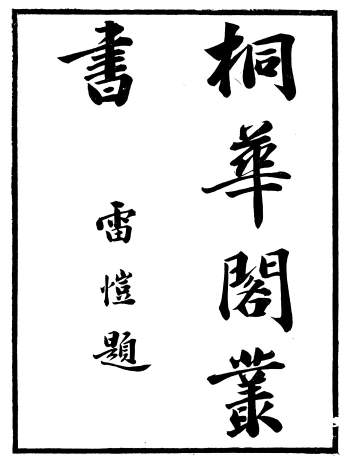 桐華閣叢
書
雷愷題